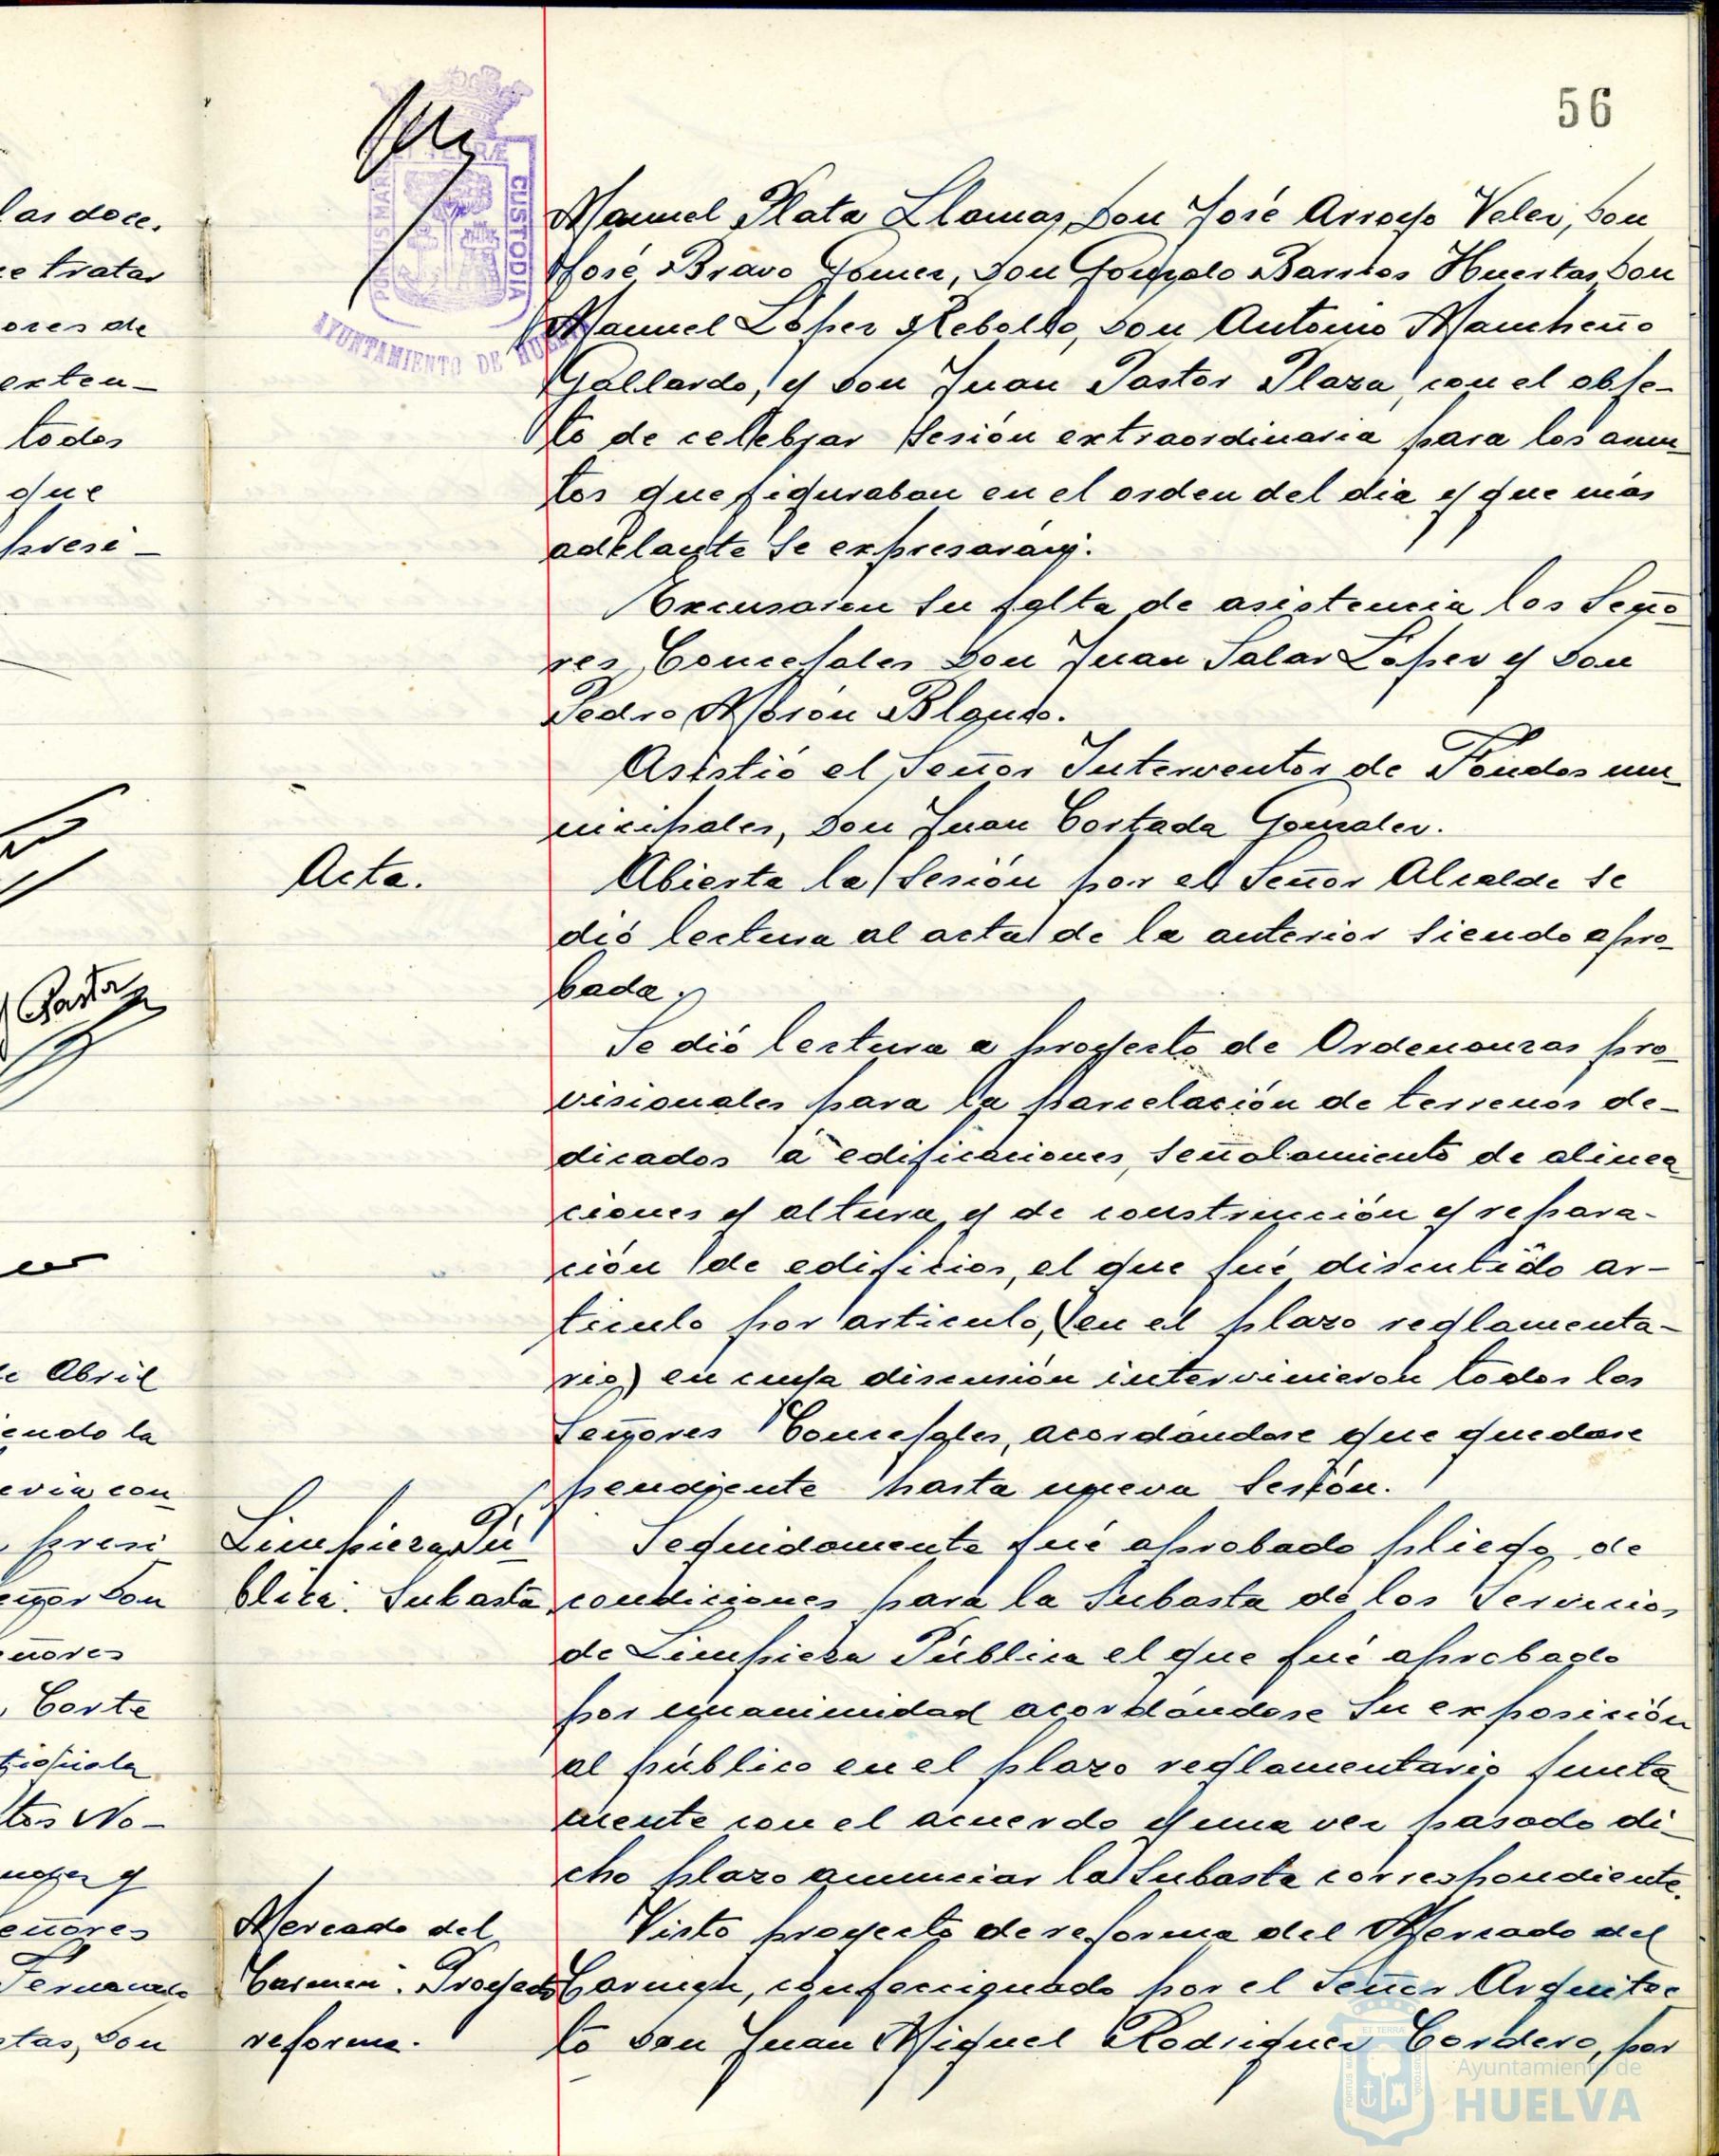 56
PORTUS MARIS
ET TERRÆ
CUSTODIA
AYUNTAMIENTO DE HUELVA
las doce.
e tratar
ores de
exten-
todos
que
presi-
Pastor
de Abril
endo la
evia con
presi
eñor Don
eñores
Corte
tos No-
y
eñores
Fernando
tas, Don
Manuel Plata Llamas, Don José Arroyo Velez, Don
José Bravo Gomez, Don Gonzalo Barrios Huertas, Don
Manuel López Rebollo, Don Antonio Mancheño
Gallardo, y Don Juan Pastor Plaza, con el obje-
to de cellebrar Sesión extraordinaria para los asun
tos que figuraban en el orden del dia y que más
adelante se expresarán.
Excusaron su falta de asistencia los Seño-
res Concejales Don Juan Salas López y Don
Pedro Morón Blanco.
Asistió el Señor Interventor de Fondos mu-
nicipales, Don Juan Cortada Gonzalez.
Acta.
Abierta la Sesión por el Señor Alcalde se
dió lectura al acta de la anterior siendo apro-
bada.
Se dió lectura a proyecto de Ordenanzas pro-
visionales para la parcelación de terrenos de-
dicados á edificaciones, señalamiento de alinea
ciones y altura y de construcción y repara-
ción de edificios, el que fué discutido ar-
ticulo por articulo, (en el plazo reglamenta-
rio) en cuya discusión intervinieron todos los
Señores Concejales, acordándose que quedase
pendiente hasta nueva Sesión.
Limpieza Pú-
blica. Subasta
Seguidamente fué aprobado pliego de
condiciones para la Subasta de los Servicios
de Limpieza Pública el que fué aprobado
por unanimidad acordándose su exposición
al público en el plazo reglamentario junta
mente con el acuerdo y una vez pasado di-
cho plazo anunciar la Subasta correspondiente.
Mercado del
Carmen. Proyecto
reforma.
Visto proyecto de reforma del Mercado del
Carmen, confeccionado por el Señor Arquitec
to Don Juan Miguel Rodriguez Cordero, por
Ayuntamiento de
HUELVA